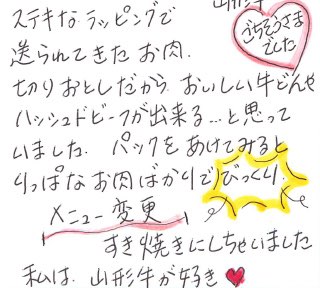 ステキな ラッピングで
送られてきた お肉.
切りおとしだから おいしい牛どんや
ハッシュドビーフが出来る…と思って
いました. パックを あけてみると
りっぱな お肉ばかりで びっくり.
メニュー 変更
すき焼きにしちゃいました
私は. 山形牛が好き♥
ごちそうさま
でした